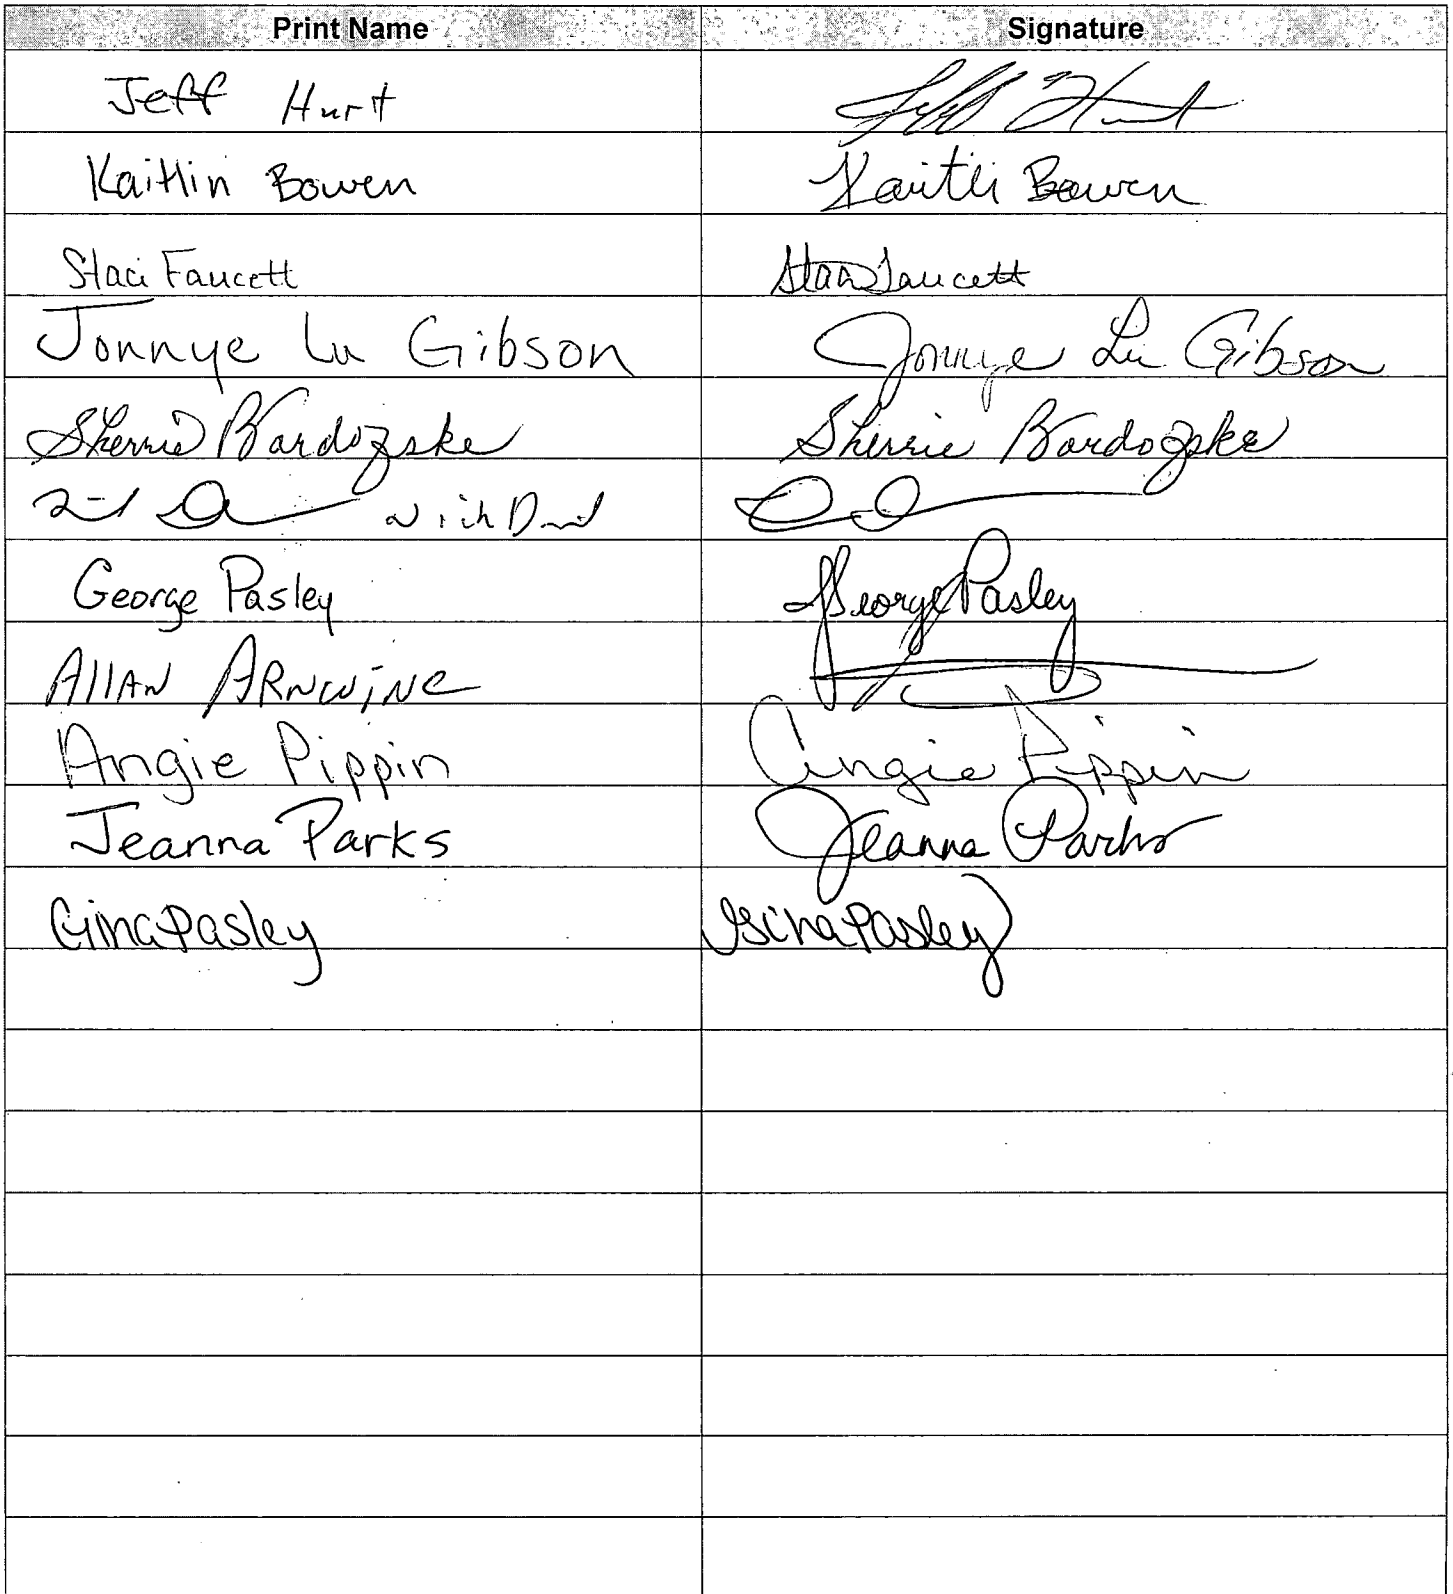 Print Name Signature
Jeff Hurt Jeff Hurt
Kaitlin Bowen Kaitli Bowen
Staci Faucett Staci Faucett
Jonnye Lu Gibson Jonnye Lu Gibson
Sherrie Bardozske Sherrie Bardozske
George Pasley George Pasley
Allan Arnwine
Angie Pippin Angie Pippin
Jeanna Parks Jeanna Parks
Gina Pasley Gina Pasley